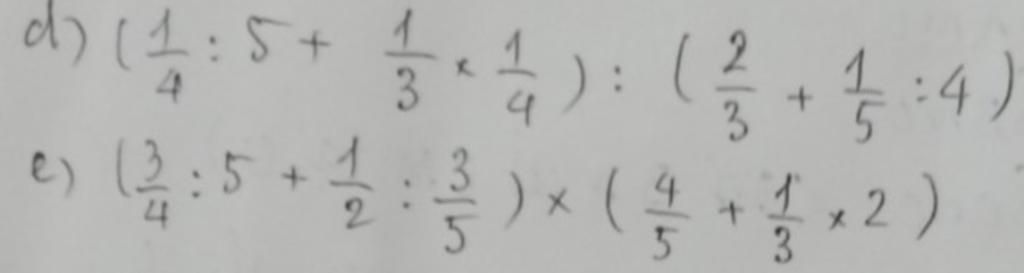 d) (1/4 : 5 + 1/3 × 1/4) : (2/3 + 1/5 : 4)
e) (3/4 : 5 + 1/2 : 3/5) × (4/5 + 1/3 × 2)